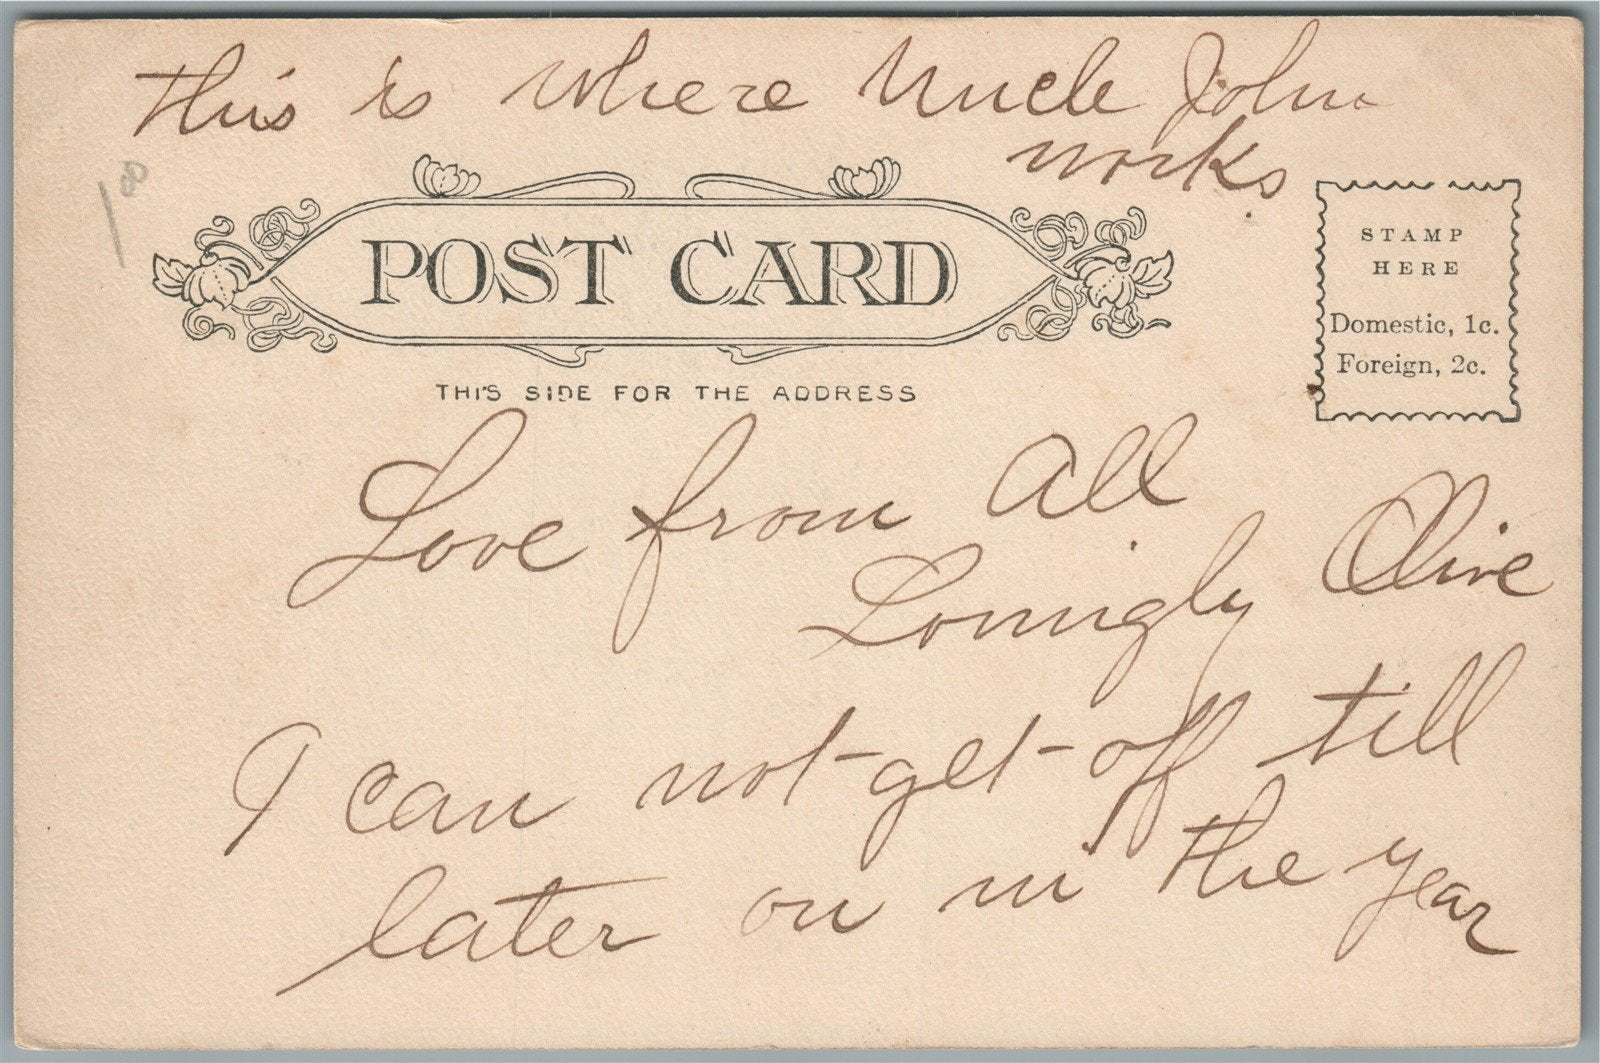 This is where Uncle John
works.
1 00
POST CARD
THIS SIDE FOR THE ADDRESS
STAMP
HERE
Domestic, 1c.
Foreign, 2c.
Love from all
Lovingly Olive
I can not get off till
later on in the year